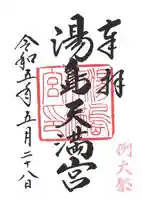 奉拝
湯島天満宮
令和五年五月二十八日
例大祭
湯島
宮印